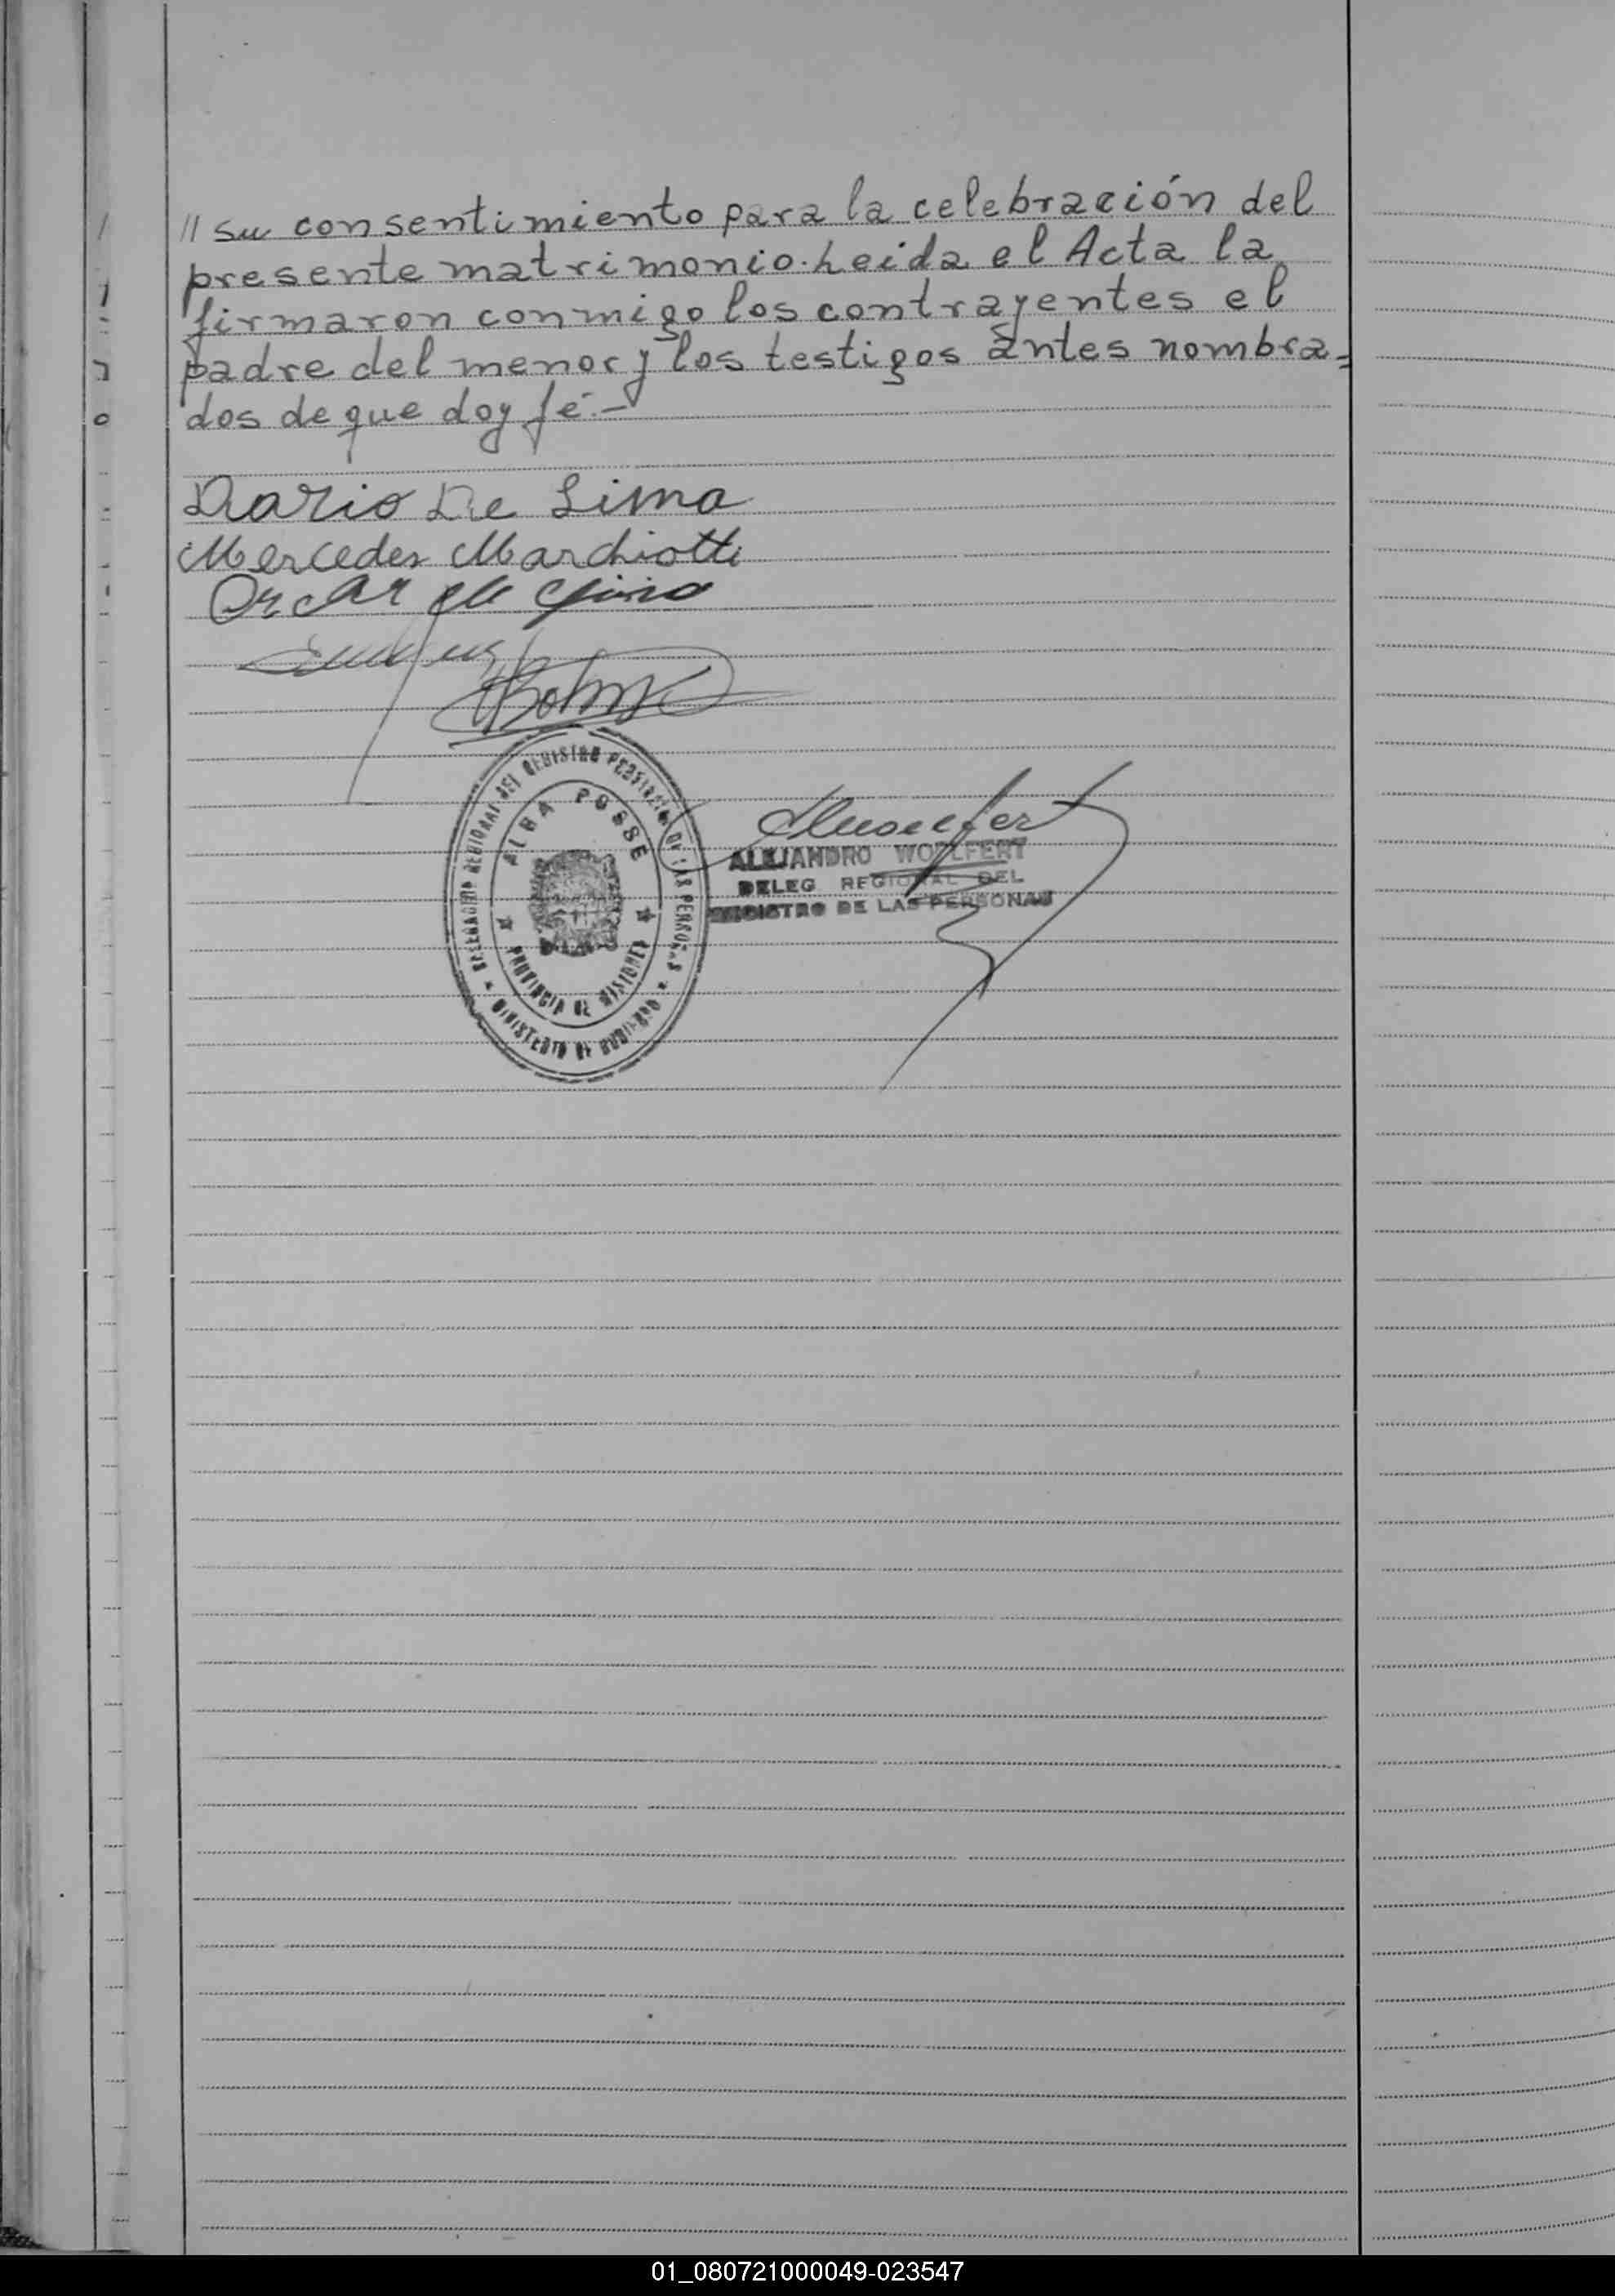 // su consentimiento para la celebración del
presente matrimonio. Leida el Acta la
firmaron conmigo los contrayentes el
padre del menor y los testigos antes nombra-
dos de que doy fé.-
Dario De Lima
Mercedes Marchiotti
Oscar de Lima
DELEGACION REGIONAL DEL REGISTRO PROVINCIAL DE LAS PERSONAS
ALBA POSSE
PROVINCIA DE MISIONES
MINISTERIO DE GOBIERNO
ALEJANDRO WOLLFERT
DELEG REGIONAL DEL
REGISTRO DE LAS PERSONAS
01_080721000049-023547